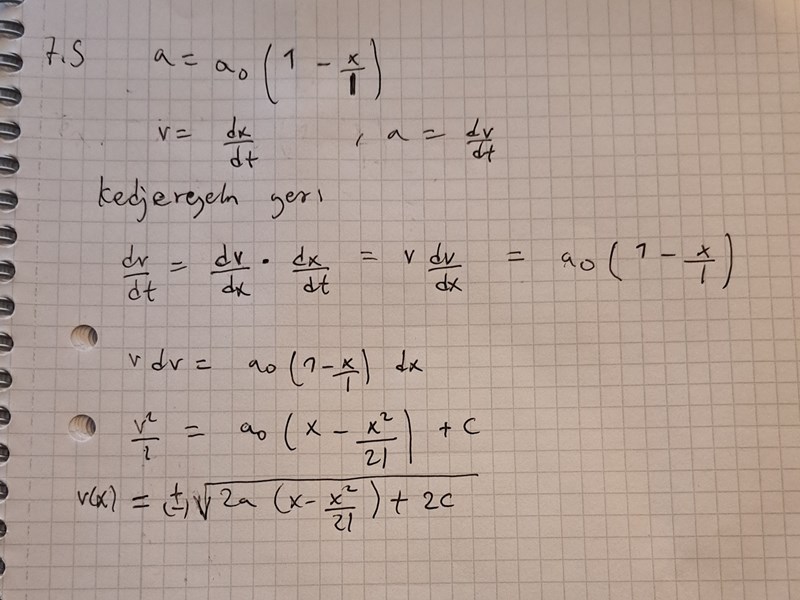 7.5 a = a₀ (1 - x/l)
v = dx/dt , a = dv/dt
kedjeregeln ger:
dv/dt = dv/dx · dx/dt = v dv/dx = a₀ (1 - x/l)
v dv = a₀ (1 - x/l) dx
v²/2 = a₀ (x - x²/2l) + C
v(x) = (±) √(2a (x - x²/2l) + 2C)